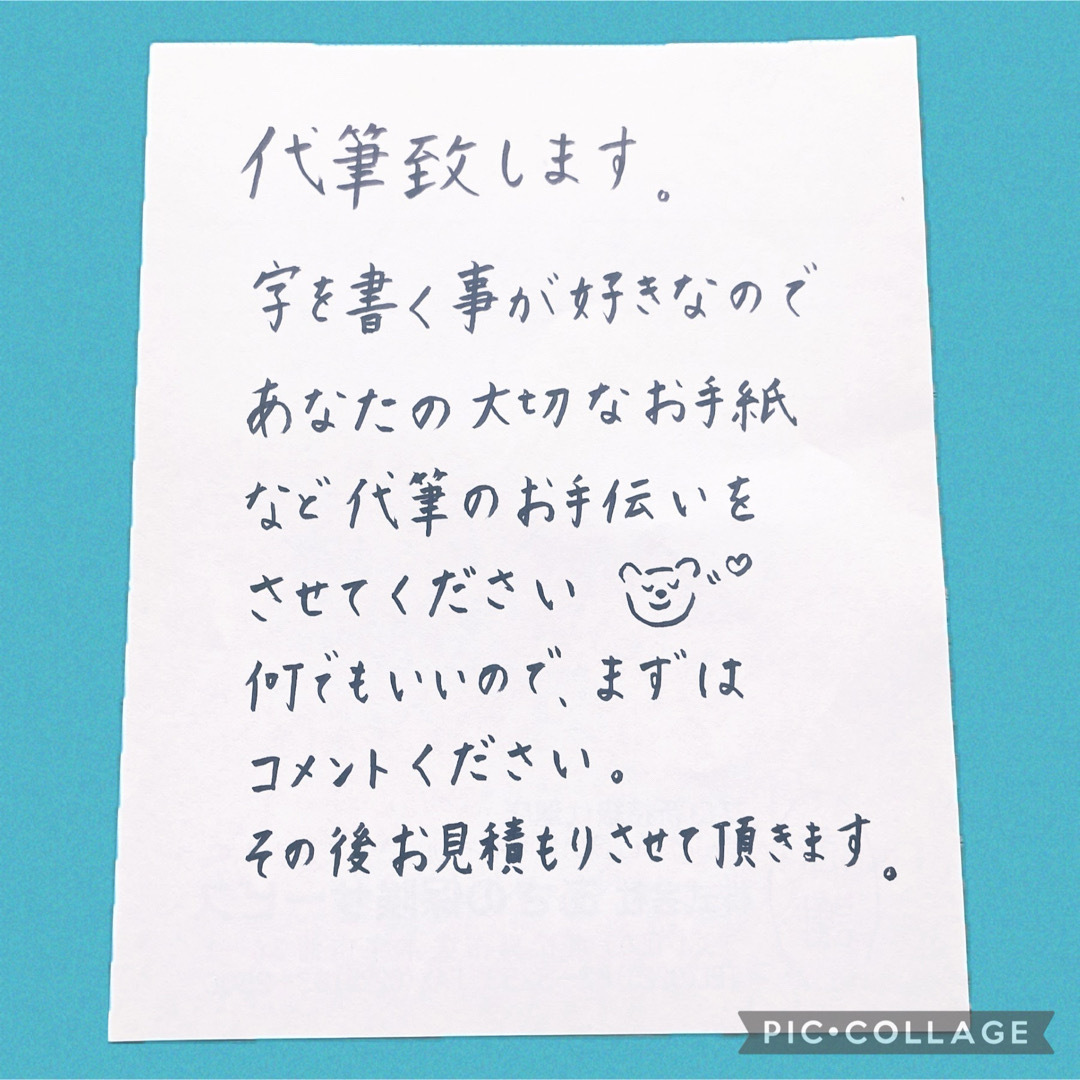 代筆致します。
字を書く事が好きなので
あなたの大切なお手紙
など代筆のお手伝いを
させてください
何でもいいので、まずは
コメントください。
その後お見積もりさせて頂きます。
PIC•COLLAGE